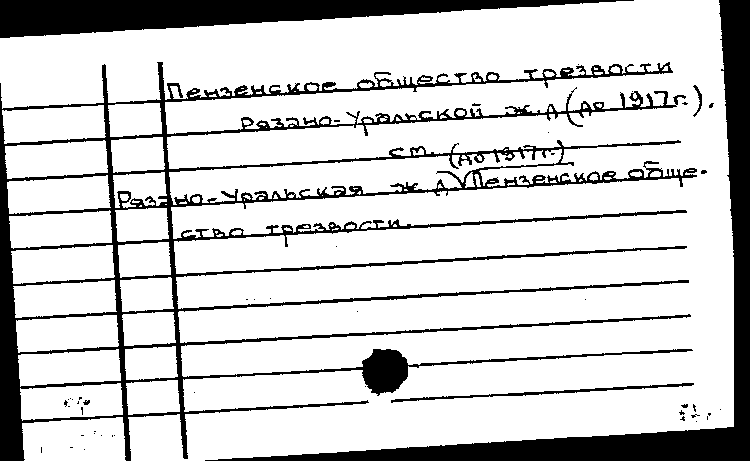 Пензенское общество трезвости
Рязано-Уральской ж.д (до 1917г.).
ст.
(до 1917г.)
Рязано-Уральская ж д Пензенское обще-
ство трезвости.